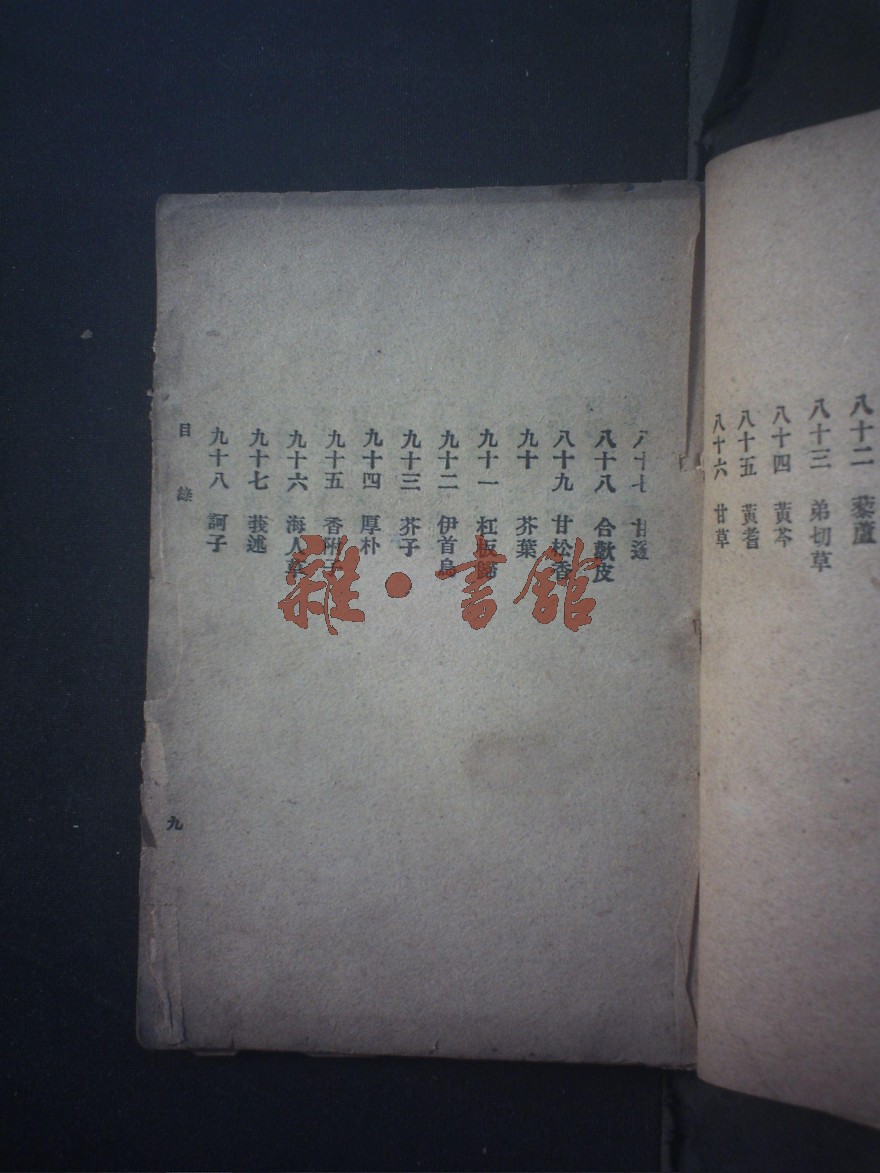 八十二　藜蘆
八十三　弟切草
八十四　黃芩
八十五　黃耆
八十六　甘草
八十七　甘遂
八十八　合歡皮
八十九　甘松香
九十　芥葉
九十一　杠板歸
九十二　伊首烏
九十三　芥子
九十四　厚朴
九十五　香附子
九十六　海人草
九十七　莪述
九十八　訶子
目錄
九
雜·書館